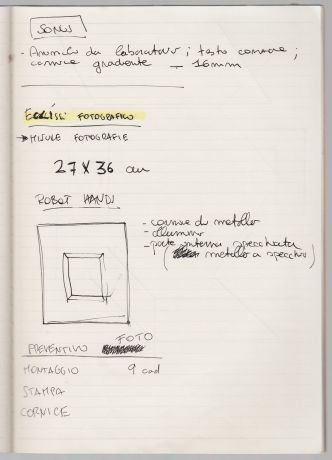 SONUS
- Annuncio da laboratorio; testo cornice;
cornice gradiente — 16mm
ECLISSI FOTOGRAFICO
→ MISURE FOTOGRAFIE
27 X 36 cm
ROBOT HANDS
- cornice di metallo
- alluminio
- parte interna specchiata
( metallo a specchio)
FOTO
PREVENTIVO
MONTAGGIO 9 cad
STAMPA
CORNICE